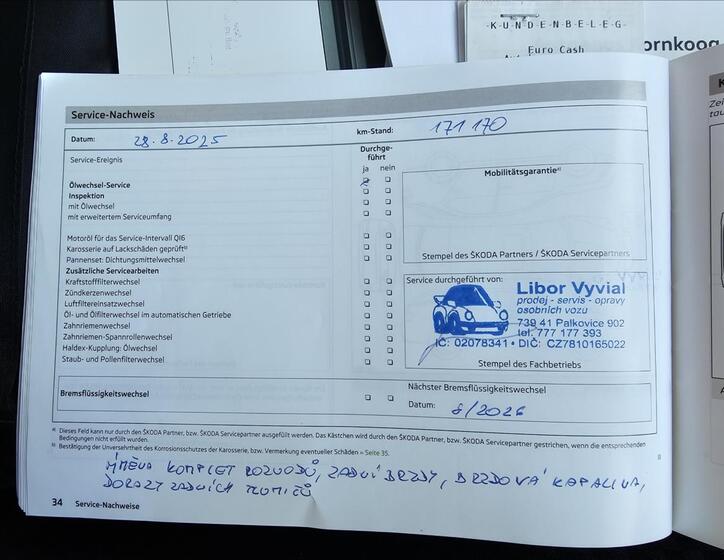 KUNDENBELEG
Euro Cash
ornkoog
Service-Nachweis
Datum: 28.8.2025
km-Stand: 171 170
Service-Ereignis
Durchge-
führt
ja nein
Ölwechsel-Service
Inspektion
mit Ölwechsel
mit erweitertem Serviceumfang
Motoröl für das Service-Intervall QI6
Karosserie auf Lackschäden geprüft b)
Pannenset: Dichtungsmittelwechsel
Zusätzliche Servicearbeiten
Kraftstofffilterwechsel
Zündkerzenwechsel
Luftfiltereinsatzwechsel
Öl- und Ölfilterwechsel im automatischen Getriebe
Zahnriemenwechsel
Zahnriemen-Spannrollenwechsel
Haldex-Kupplung: Ölwechsel
Staub- und Pollenfilterwechsel
Bremsflüssigkeitswechsel
Mobilitätsgarantie a)
Stempel des ŠKODA Partners / ŠKODA Servicepartners
Service durchgeführt von:
Libor Vyvial
prodej - servis - opravy
osobních vozu
739 41 Palkovice 902
tel. 777 177 393
IČ: 02078341 • DIČ: CZ7810165022
Stempel des Fachbetriebs
Nächster Bremsflüssigkeitswechsel
Datum: 8/2026
a) Dieses Feld kann nur durch den ŠKODA Partner, bzw. ŠKODA Servicepartner ausgefüllt werden. Das Kästchen wird durch den ŠKODA Partner, bzw. ŠKODA Servicepartner gestrichen, wenn die entsprechenden
Bedingungen nicht erfüllt wurden.
b) Bestätigung der Unversehrtheit des Korrosionsschutzes der Karosserie, bzw. Vermerkung eventueller Schäden » Seite 35.
VÝMĚNA KOMPLET ROZVODŮ, ZADNÍ BRZDY, BRZDOVÁ KAPALINA,
DORAZY ZADNÍCH TLUMIČŮ
34 Service-Nachweise